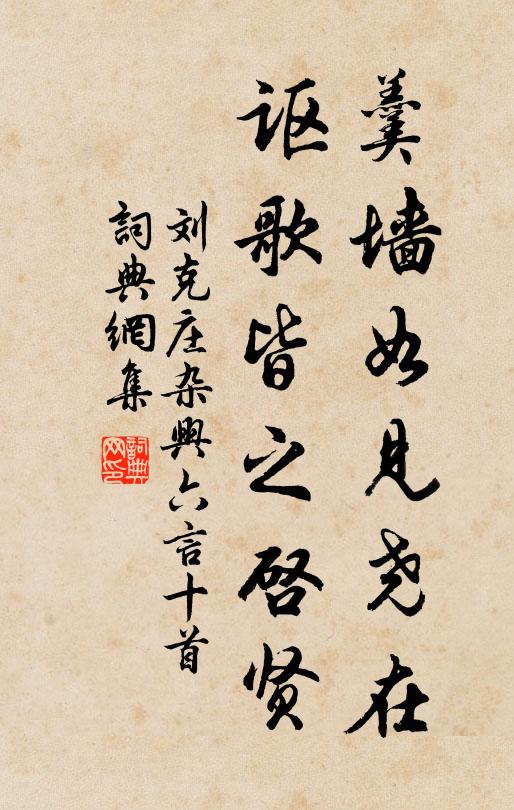 羹墙如见尧在
讴歌皆之啓贤
刘克庄杂興六言十首
詞典網集
詞典网印